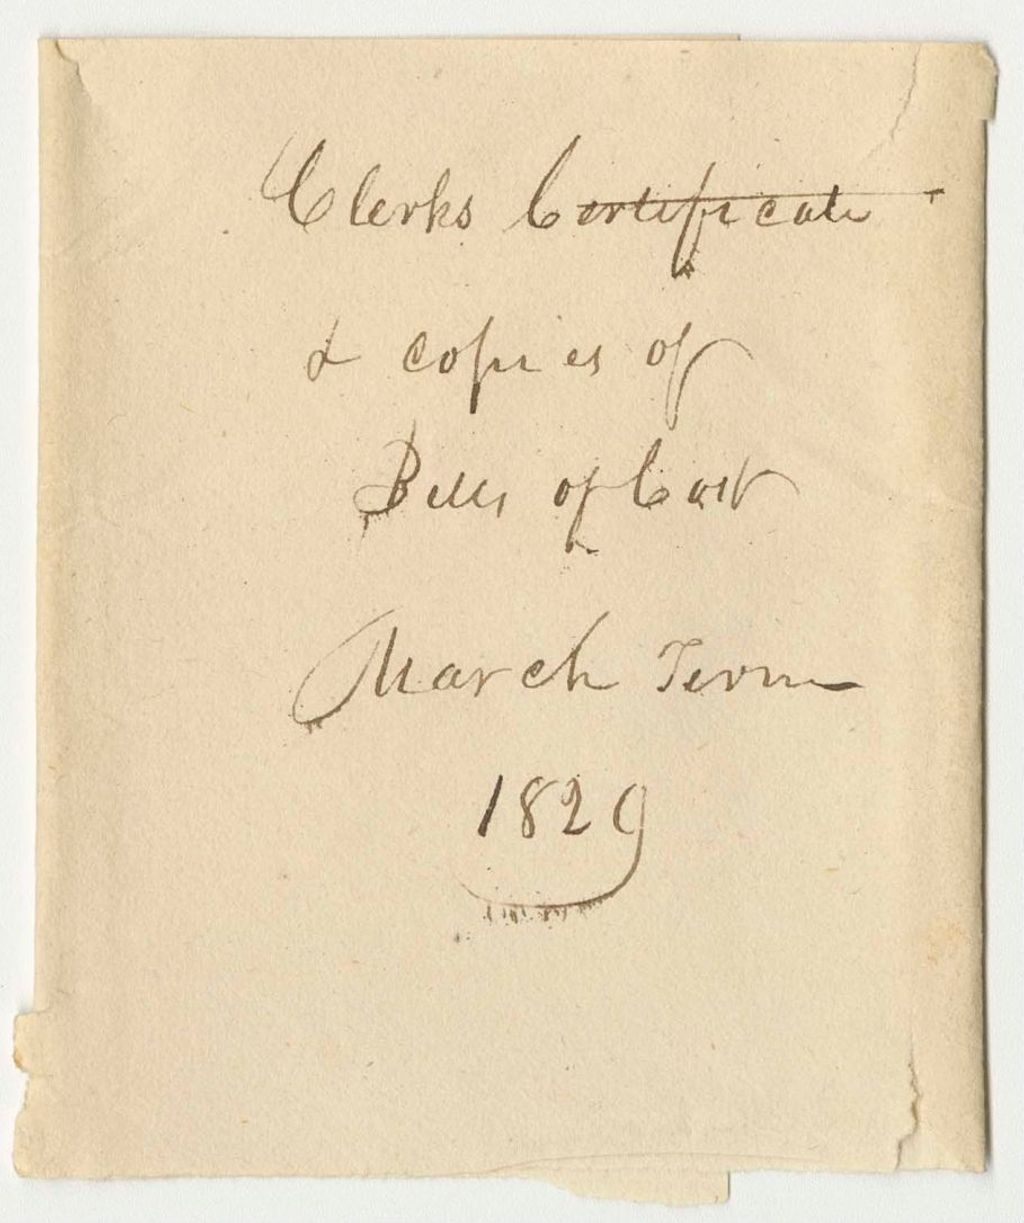 Clerks Certificate
& copies of
Bills of Cost
March Term
1829